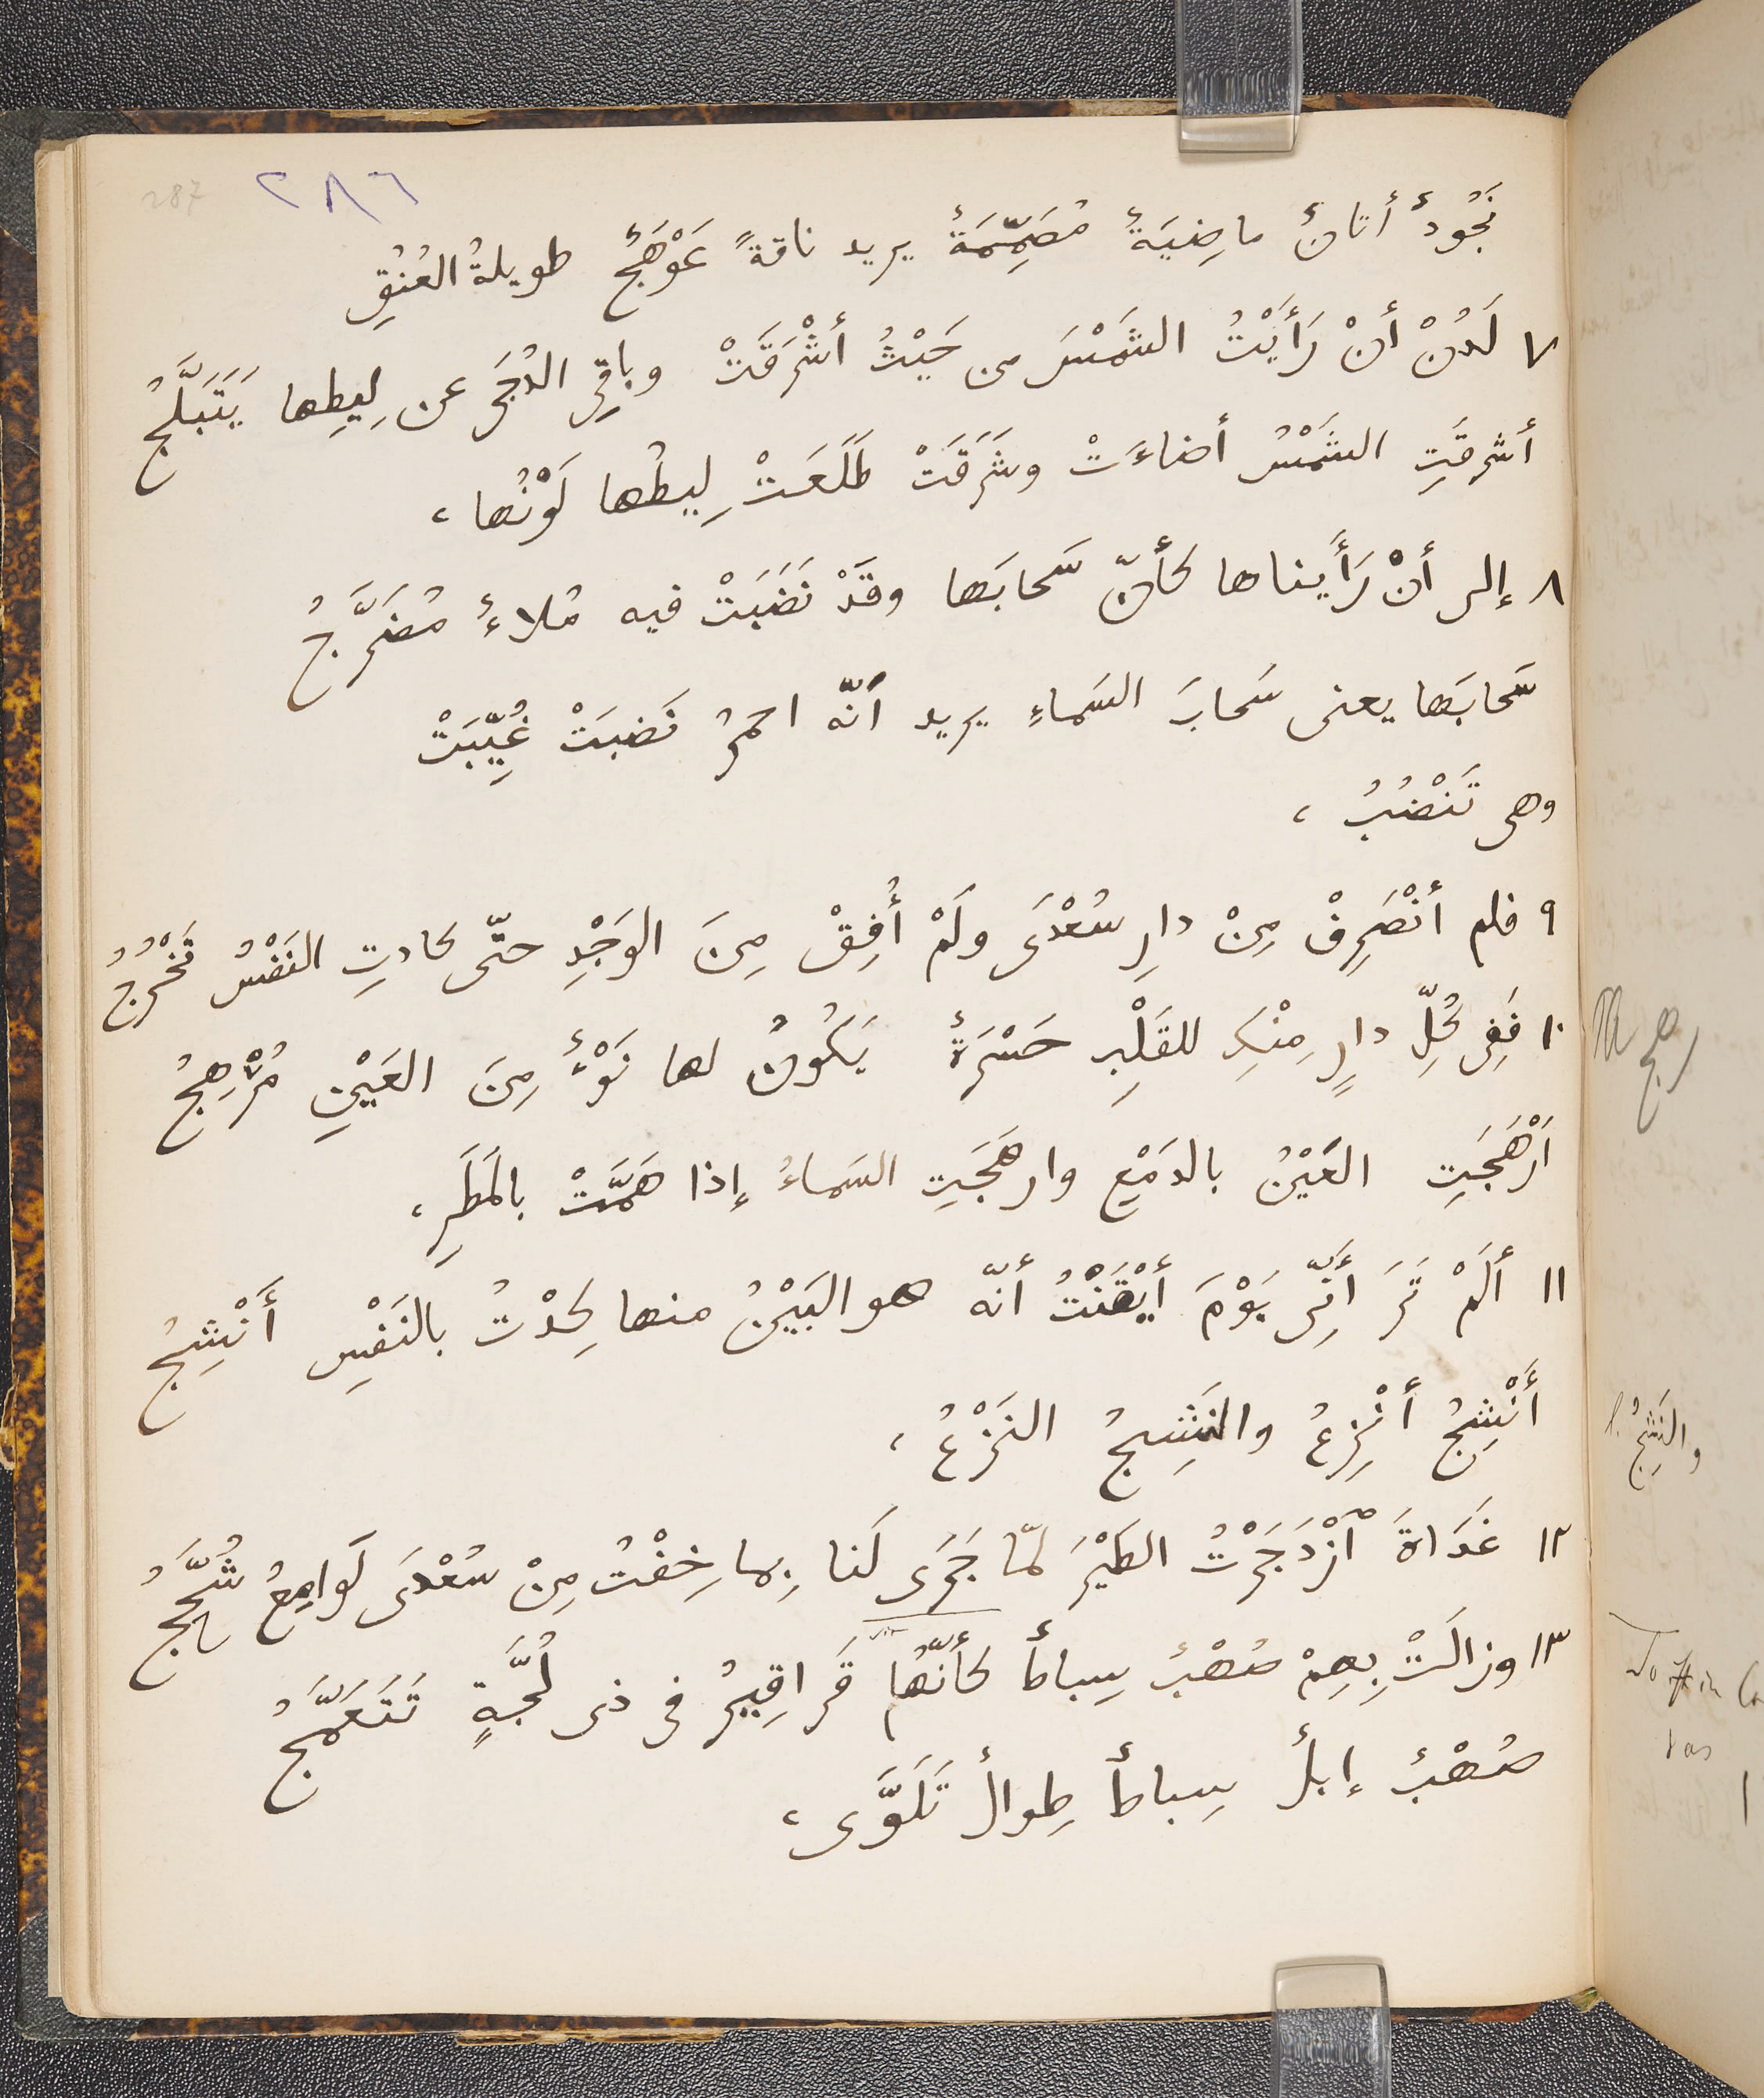 287 ٢٨٦
نَجُودٌ أتانٌ ماضِيَةٌ مُصَمِّمَةٌ يريد ناقةً عَوْهَجٌ طويلةُ العُنُقِ
٧ لَدُنْ أنْ رَأَيْتُ الشَمْسَ من حَيْثُ أشْرَقَتْ وباقِى الدُجَى عن لِيطِها يَتَبَلَّجُ
أشرقَتِ الشَمْسُ أضاءَتْ وشَرَقَتْ طَلَعَتْ لِيطُها لَوْنُها ،
٨ إلى أنْ رَأَيناها كَأنّ سَحابَها وقَدْ نَضَبَتْ فيه مُلاءٌ مُضَرَّجُ
سَحابَها يعنى سَحابَ السَماءِ يريد أنّه احمرُ نَضبَتْ غُيِّبَتْ
وهى تَنْضُبُ ،
٩ فلم أنْصَرِفْ مِنْ دارِ سُعْدَى ولَمْ أُفِقْ مِنَ الوَجْدِ حتّى كادتِ النَفْسُ تَخْرُجُ
١٠ فَفِى كُلِّ دارٍ مِنْكِ للقَلْبِ حَسْرَةٌ يَكُونُ لها نَوْءٌ مِنَ العَيْنِ مُرْهِجُ
أرْهَجَتِ العَيْنُ بالدَمْعِ وارهَجَتِ السَماءُ إذا هَمَّتْ بالمَطَرِ ،
١١ أَلَمْ تَرَ أَنِّى يَوْمَ أَيْقَنْتُ أنّه هو البَيْنُ منها كِدْتُ بالنَفْسِ أَنْشِجُ
أَنْشِجُ أنْزِعُ والنَشِيجُ النَزْعُ ،
١٢ غَدَاةَ ٱزْدَجَرْتُ الطَيْرَ لمّا جَرَى لَنا بِما خِفْتُ مِنْ سُعْدَى لَوامِعُ شُحَّجُ
١٣ وزالَتْ بِهِمْ صُهْبٌ سِباطٌ كأنّها قَراقِيرُ فى ذى لُجَّةٍ تَتَعَمَّجُ
صُهْبٌ إبلٌ سِباطٌ طِوالٌ تَلَوَّى ،
رهج
والنَشِجُ